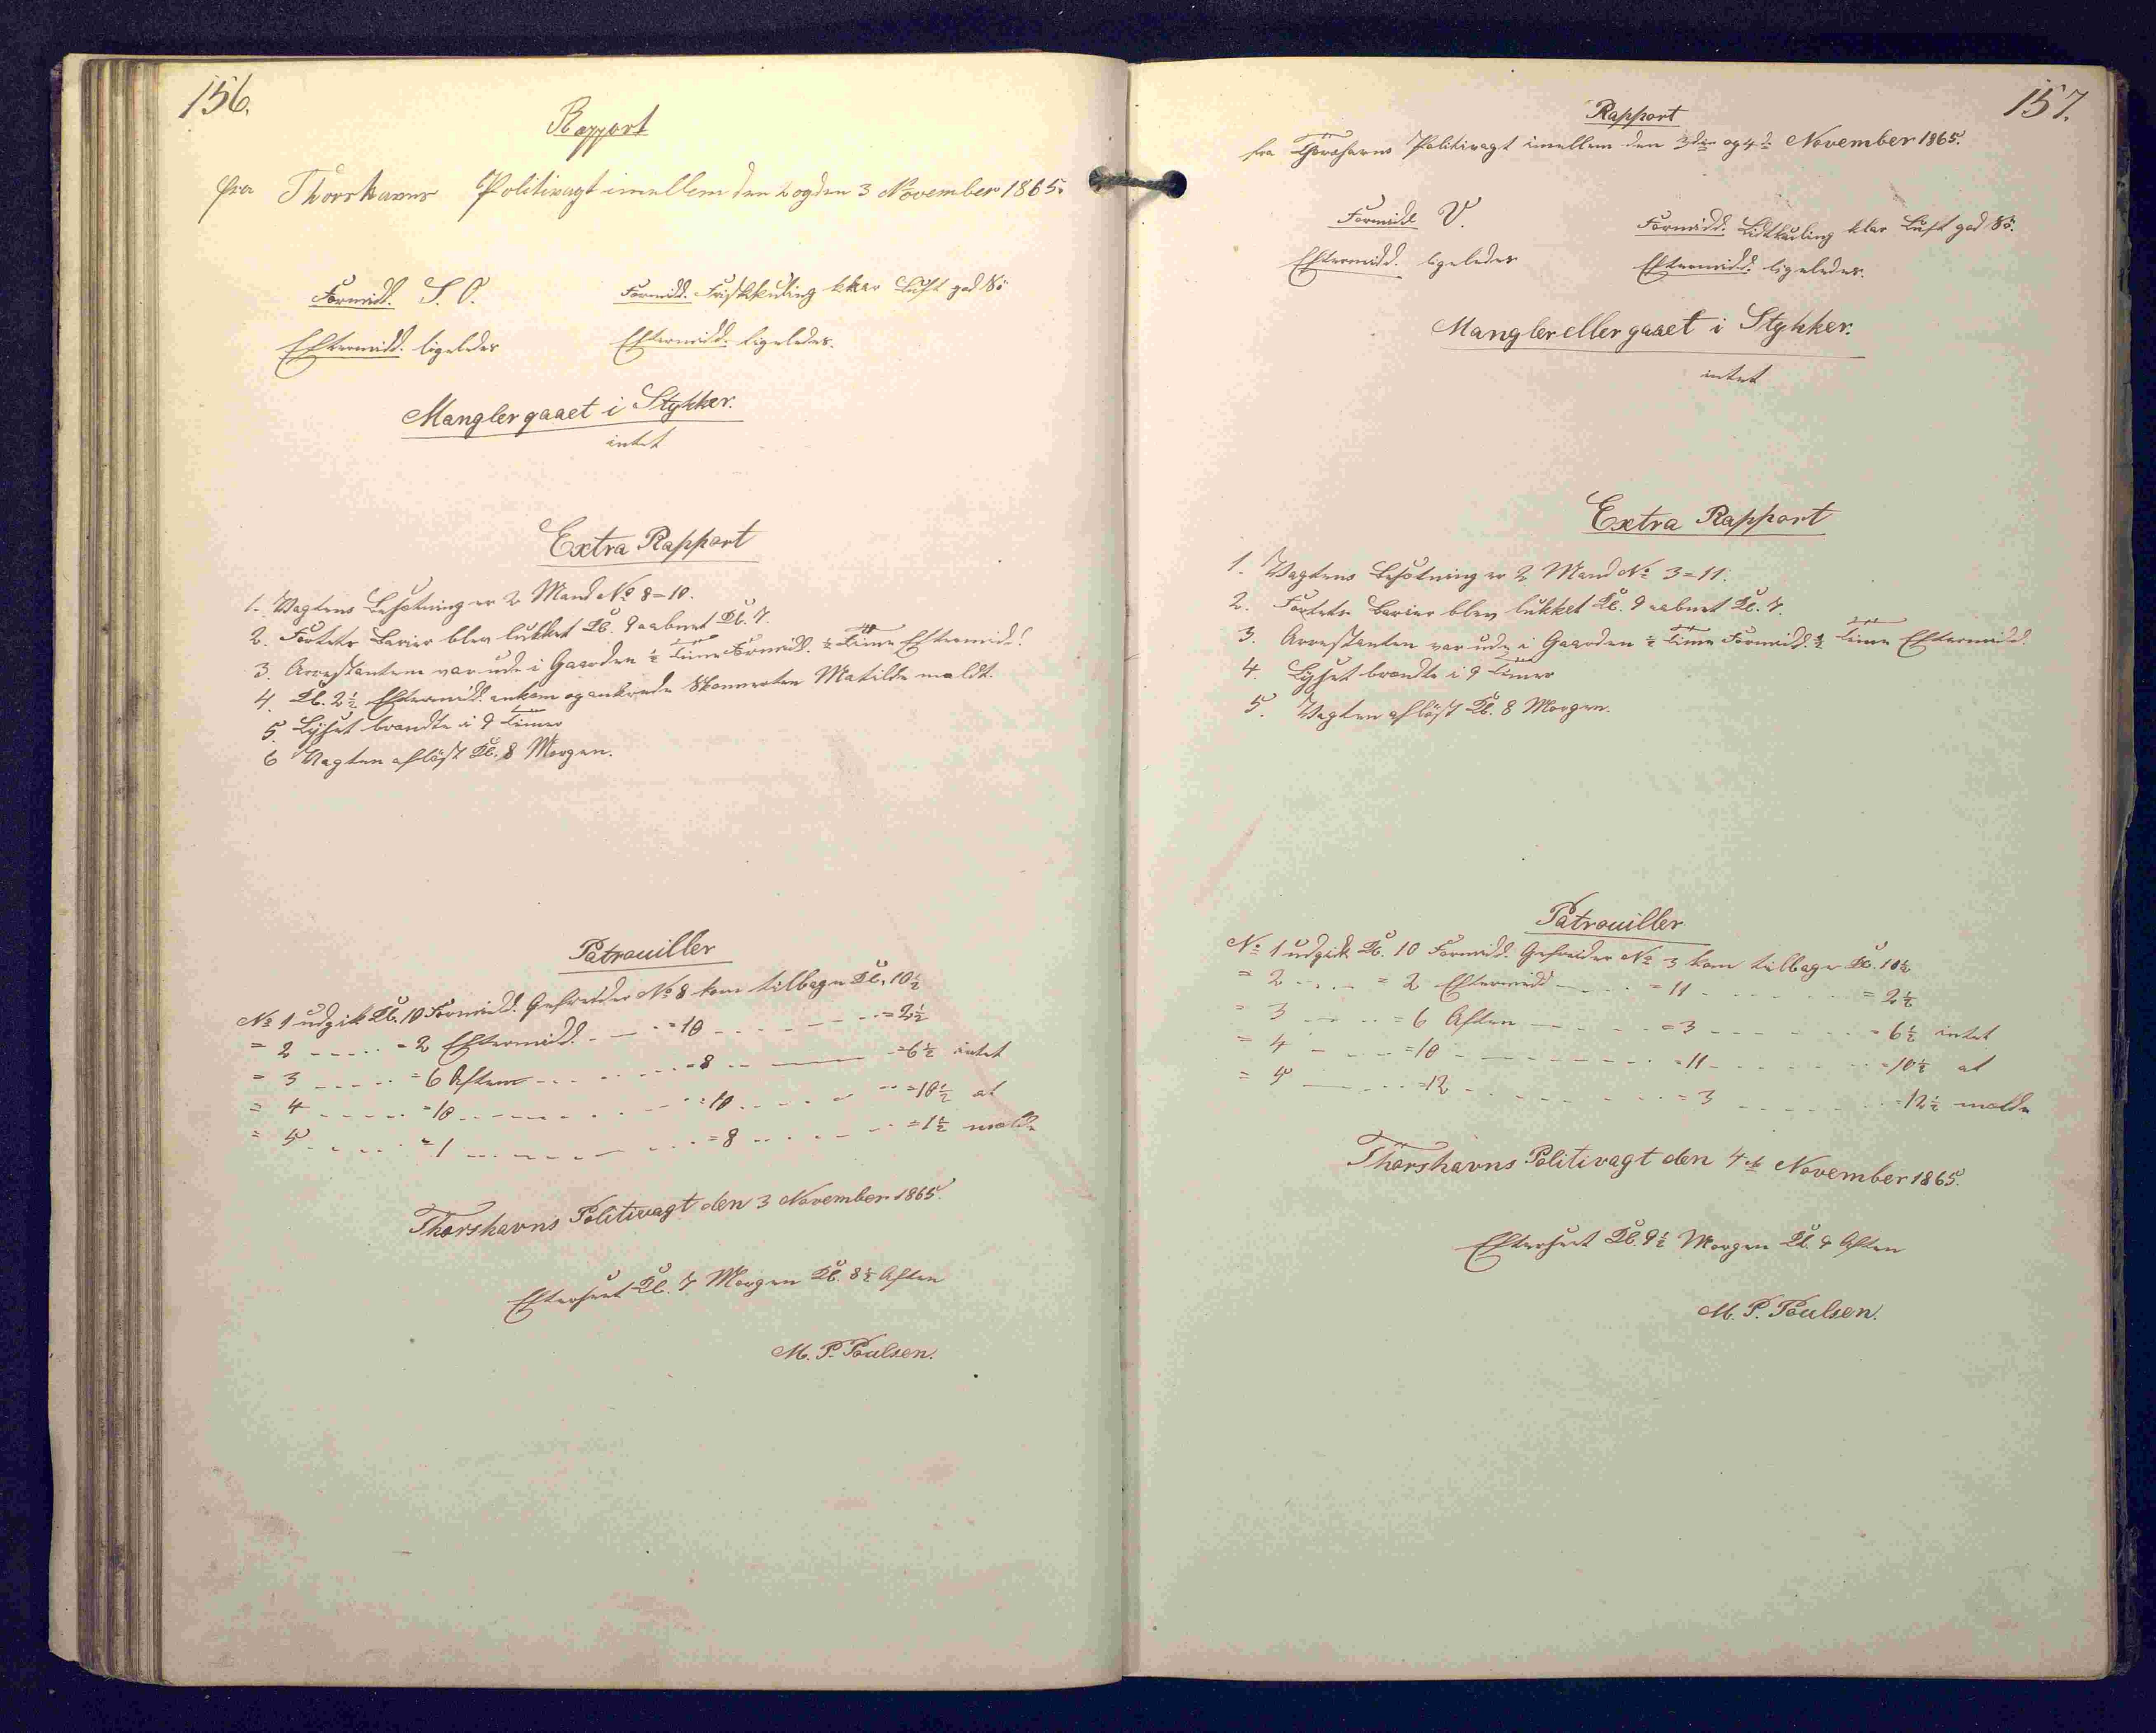 156.
Rapport
fra Thorshavns Politivagt imellem den 2 og den 3 November 1865.
Formidd. S. O. Formidd. Friskkuling klar Luft god Sö
Eftermidd. ligeledes Eftermidd. ligeledes.
Mangler gaaet i Stykker.
intet
Extra Rapport
1. Vagtens Besætning er 2 Mand No 8 = 10.
2. Fortets Barier blev lukket Kl. 9 aabnet Kl. 7.
3. Arrestantene var ude i Gaarden ½ Time Formidd. ½ Time Eftermidd.
4. Kl. 2½ Eftermidd. ankom og ankrede Skonnerten Matilde meldt.
5. Lyset brændte i 9 Timer
6 Vagten aflöst Kl. 8 Morgen.
Patrouiller
No 1 udgik Kl. 10 Formidd. Gefreider No 8 kom tilbage Kl. 10½
= 2 - - - - - = 2 Eftermidd. - - - = 10 - - - - - - - = 2½
= 3 - - - - - = 6 Aften - - - - - - = 8 - - - - = 6½ intet
= 4 - - - - - = 10 - - - - - - - = 10 - - - - - - = 10½ at
= 5 - - - - - = 1 - - - - - - - = 8 - - - - - = 1½ melde
Thorshavns Politivagt den 3 November 1865.
Efterseet Kl. 7 Morgen Kl. 8½ Aften
M. P. Poulsen.
157.
Rapport
fra Thorshavns Politivagt imellem den 3die og 4de November 1865.
Formidd V. Formidd. Lidtkuling klar Luft god Sö.
Eftermidd. ligeledes Eftermidd. ligeledes.
Mangler eller gaaet i Stykker.
intet
Extra Rapport
1. Vagtens Besætning er 2 Mand No 3 = 11.
2. Fortets Barier blev lukket Kl. 9 aabnet Kl. 7.
3. Arrestanten var ude i Gaarden ½ Time Formidd. ½ Time Eftermidd.
4. Lyset brændte i 9 Timer
5. Vagten aflöst Kl. 8 Morgen.
Patrouiller
No 1 udgik Kl. 10 Formidd. Gefreider No 3 kom tilbage Kl. 10½
= 2 - - - - = 2 Eftermidd - - - - = 11 - - - - - - = 2½
= 3 - - - - = 6 Aften - - - - - = 3 - - - - - - = 6½ intet
= 4 - - - - = 10 - - - - - - - - = 11 - - - - - - = 10½ at
= 5 - - - - = 12 - - - - - - - = 3 - - - - - - = 12½ melde
Thorshavns Politivagt den 4de November 1865.
Efterseet Kl. 9½ Morgen Kl. 9 Aften
M. P. Poulsen.